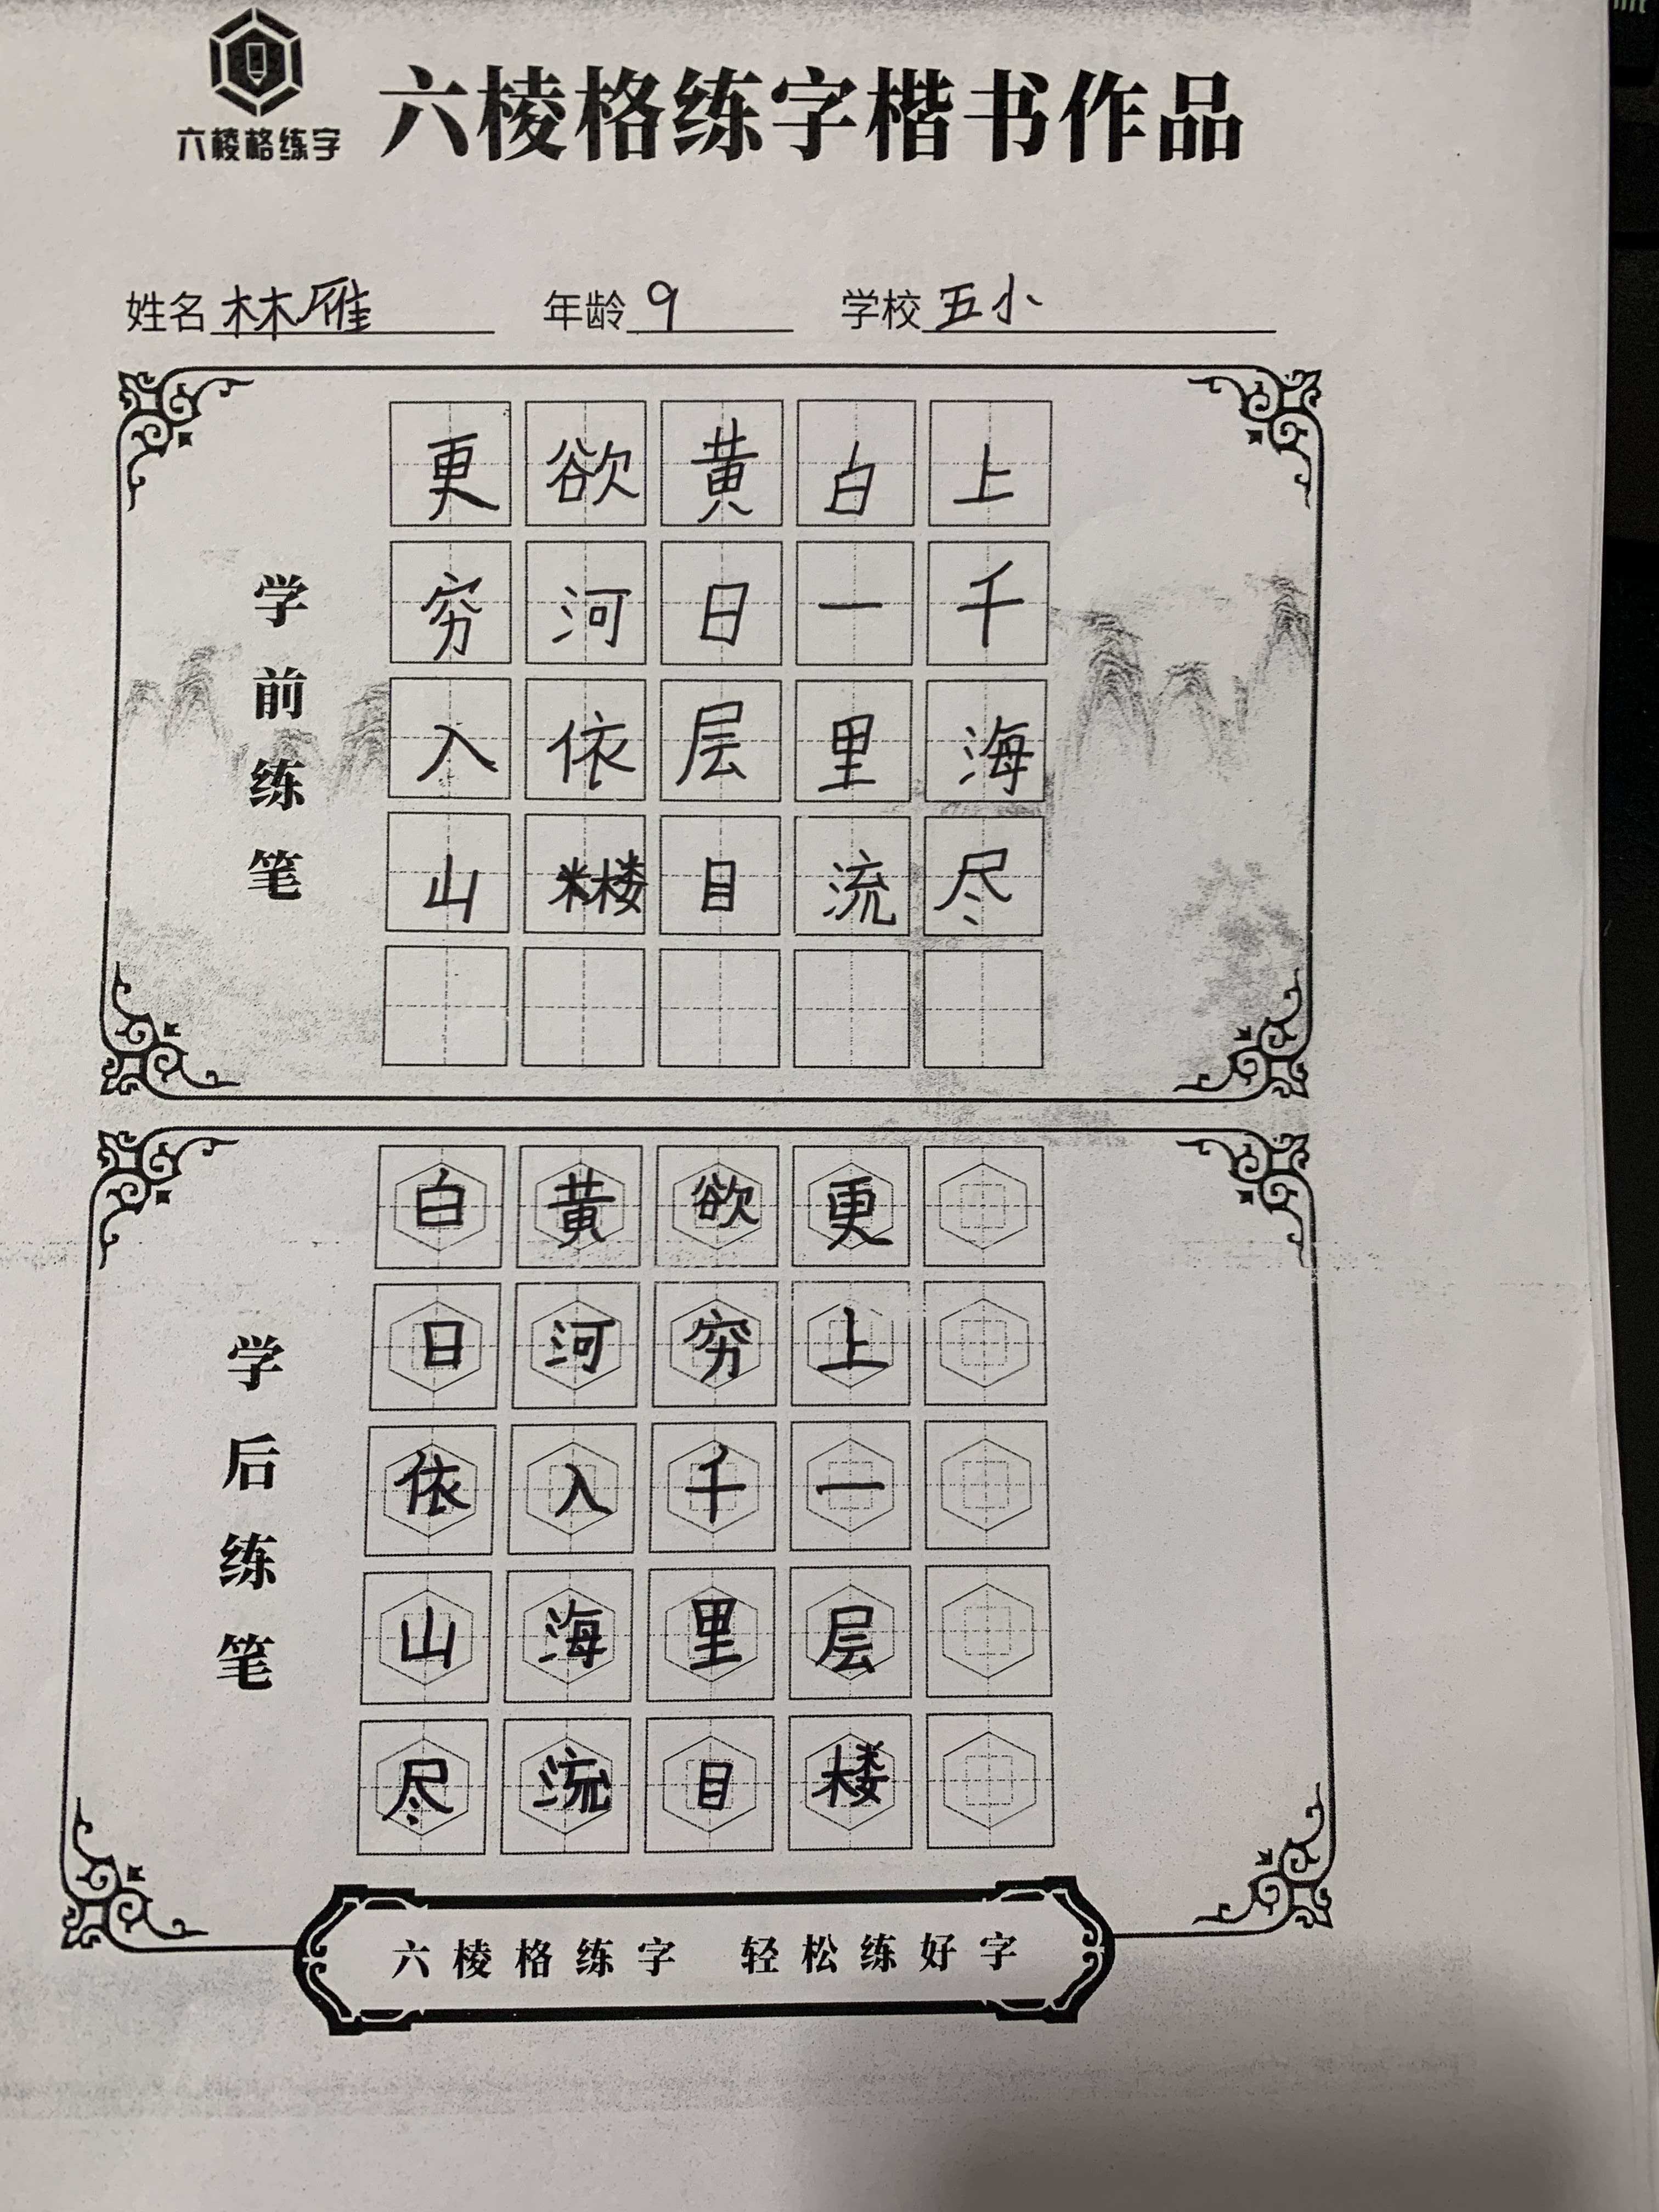 六棱格练字
六棱格练字楷书作品
姓名 林雁 年龄 9 学校 五小
学前练笔
更 欲 黄 白 上
穷 河 日 一 千
入 依 层 里 海
山 楼 目 流 尽
学后练笔
白 黄 欲 更
日 河 穷 上
依 入 千 一
山 海 里 层
尽 流 目 楼
六棱格练字 轻松练好字